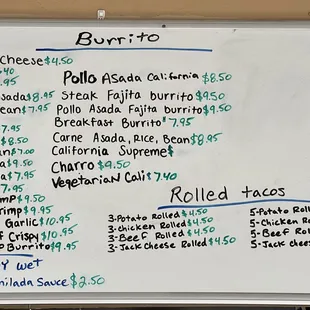 Burrito
Cheese $4.50
.40
.95
sada $8.95
ean $7.95
7.95
$8.50
an $7.00
a $9.50
a $7.95
7.95
mp $9.50
rimp $9.95
Garlic $10.95
f Crispy $10.95
o Burrito $9.95
y wet
hilada Sauce $2.50
Pollo Asada California $8.50
Steak Fajita burrito $9.50
Pollo Asada Fajita burrito $9.50
Breakfast Burrito $7.95
Carne Asada, Rice, Bean $8.95
California Supreme $
Charro $9.50
Vegetarian Cali $7.40
Rolled tacos
3-Potato Rolled $4.50
3-chicken Rolled $4.50
3-Beef Rolled $4.50
3-Jack Cheese Rolled $4.50
5-Potato Roll
5-Chicken Ro
5-Beef Rol
5-Jack chees